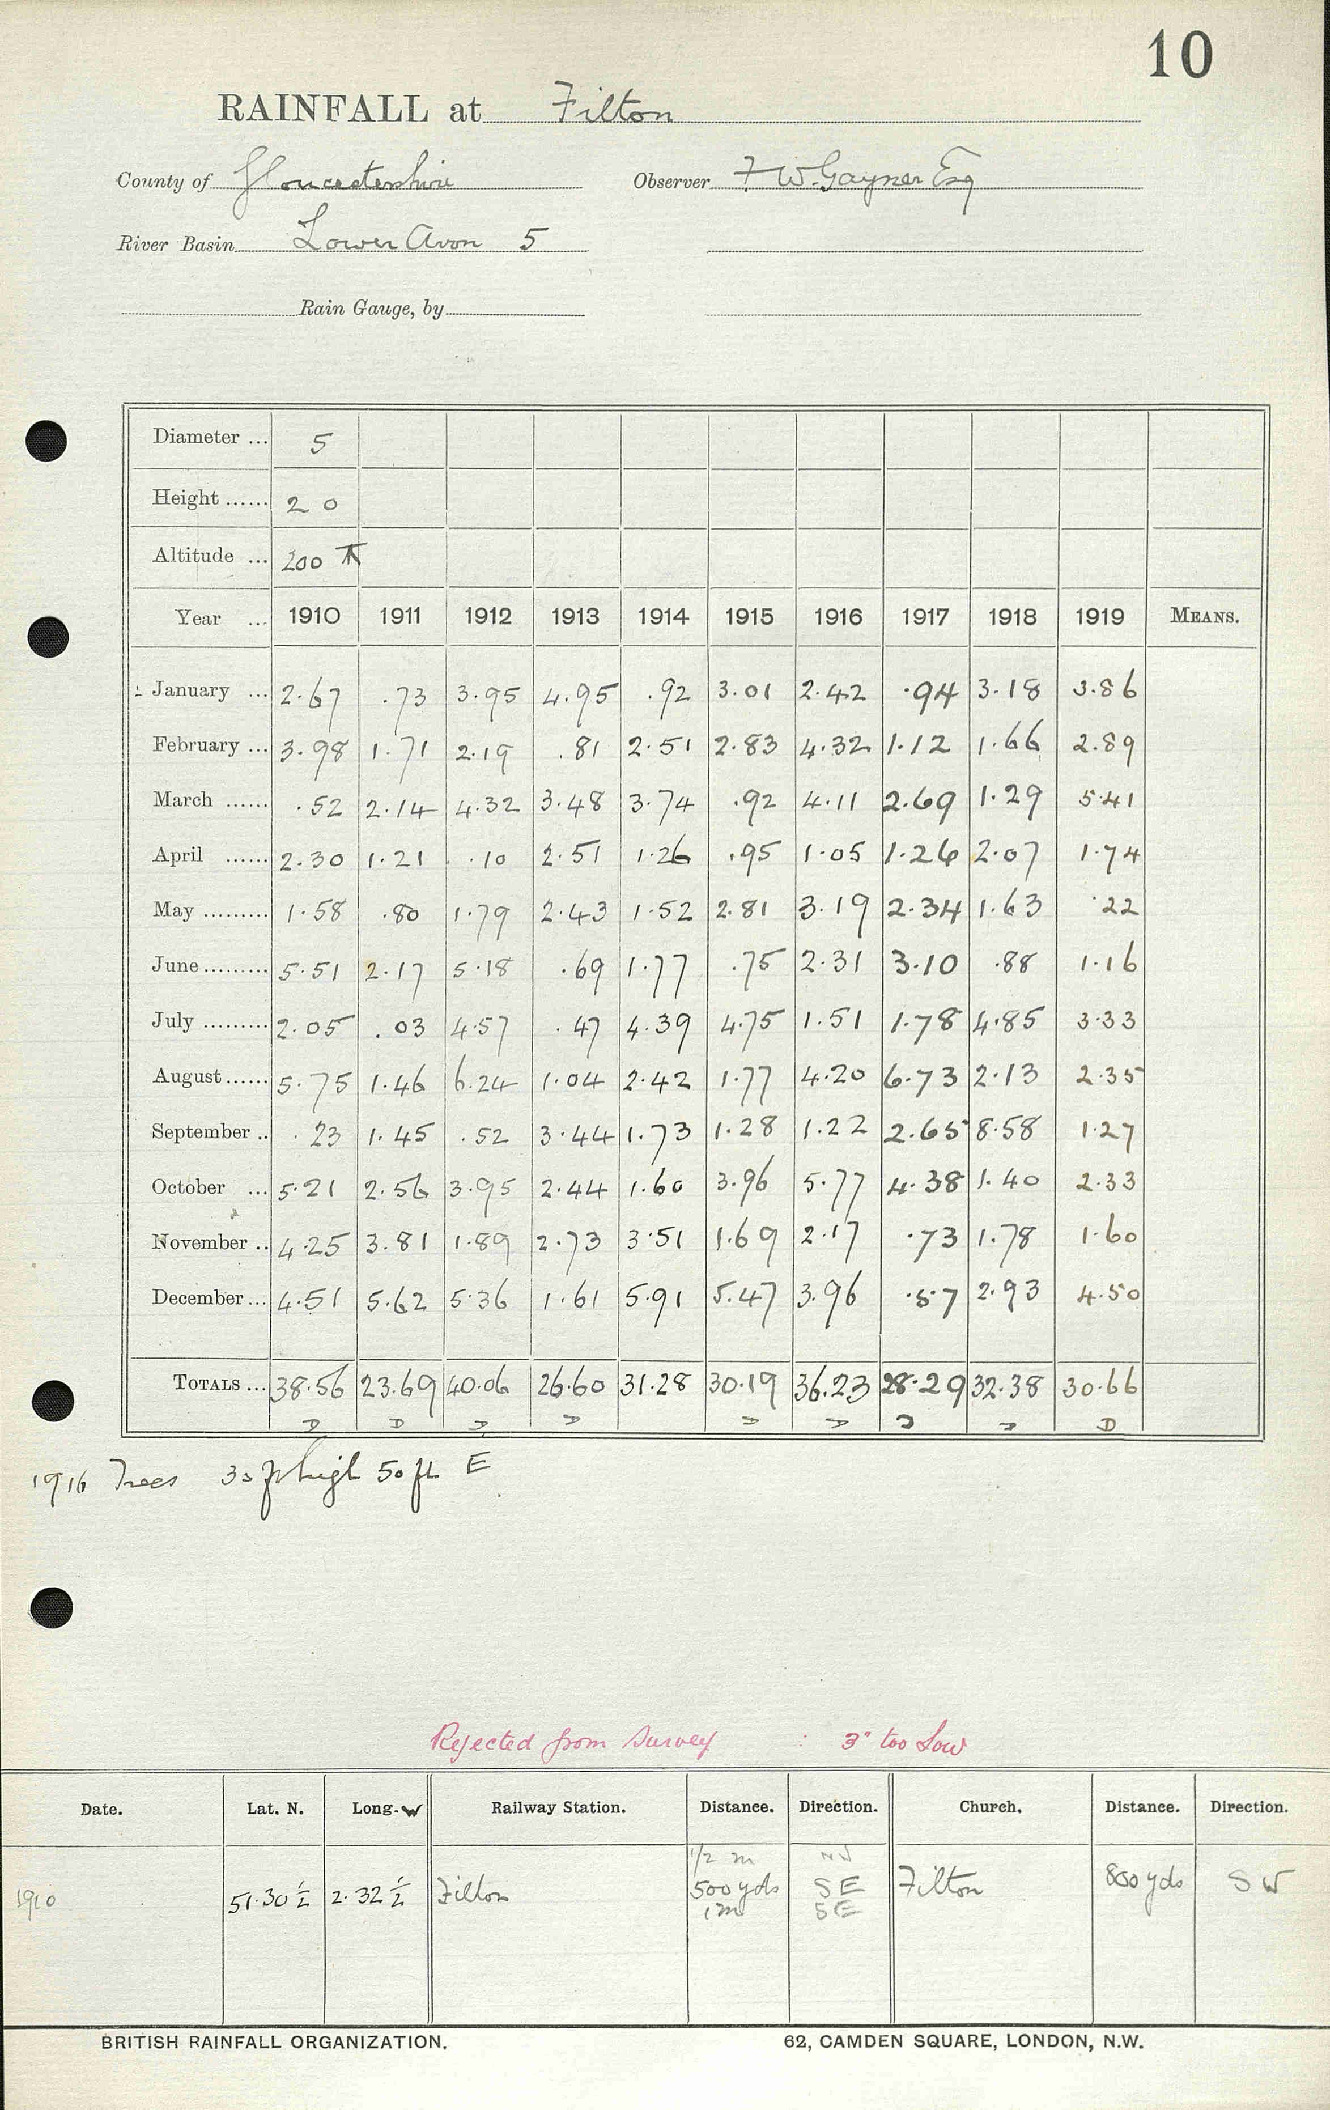 10
RAINFALL at Filton
County of Gloucestershire Observer F W Gayner Esq
River Basin Lower Avon 5
Rain Gauge, by
Diameter ... 5
Height ...... 2 0
Altitude ... 200
Year ... 1910 1911 1912 1913 1914 1915 1916 1917 1918 1919 MEANS.
January ... 2.67 .73 3.95 4.95 .92 3.01 2.42 .94 3.18 3.86
February ... 3.98 1.71 2.19 .81 2.51 2.83 4.32 1.12 1.66 2.89
March ...... .52 2.14 4.32 3.48 3.74 .92 4.11 2.69 1.29 5.41
April ...... 2.30 1.21 .10 2.51 1.26 .95 1.05 1.26 2.07 1.74
May ......... 1.58 .80 1.79 2.43 1.52 2.81 3.19 2.34 1.63 .22
June ......... 5.51 2.17 5.18 .69 1.77 .75 2.31 3.10 .88 1.16
July ......... 2.05 .03 4.57 .47 4.39 4.75 1.51 1.78 4.85 3.33
August ...... 5.75 1.46 6.24 1.04 2.42 1.77 4.20 6.73 2.13 2.35
September .. .23 1.45 .52 3.44 1.73 1.28 1.22 2.65 8.58 1.27
October ... 5.21 2.56 3.95 2.44 1.60 3.96 5.77 4.38 1.40 2.33
November .. 4.25 3.81 1.89 2.73 3.51 1.69 2.17 .73 1.78 1.60
December ... 4.51 5.62 5.36 1.61 5.91 5.47 3.96 .57 2.93 4.50
TOTALS ... 38.56 23.69 40.06 26.60 31.28 30.19 36.23 28.29 32.38 30.66
D D D D D D D D D
1916 Trees 30 ft high 50 ft E
Rejected from Survey : 3" too low
Date. Lat. N. Long. W Railway Station. Distance. Direction. Church. Distance. Direction.
1/2 m NW
1910 51.30 1/2 2.32 1/2 Filton 500 yds SE Filton 800 yds SW
1 m SE
BRITISH RAINFALL ORGANIZATION. 62, CAMDEN SQUARE, LONDON, N.W.